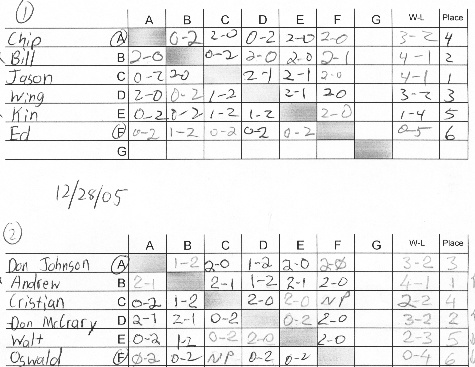 ①
A B C D E F G W-L Place
Chip A 0-2 2-0 0-2 2-0 2-0 3-2 4
Bill B 2-0 0-2 2-0 2-0 2-1 4-1 2
Jason C 0-2 2-0 2-1 2-1 2-0 4-1 1
Wing D 2-0 0-2 1-2 2-1 2-0 3-2 3
Kin E 0-2 0-2 1-2 1-2 2-0 1-4 5
Ed F 0-2 1-2 0-2 0-2 0-2 0-5 6
G
12/28/05
②
A B C D E F G W-L Place
Don Johnson A 1-2 2-0 1-2 2-0 2-0 3-2 3
Andrew B 2-1 2-1 1-2 2-1 2-0 4-1 1
Cristian C 0-2 1-2 2-0 2-0 NP 2-2 4
Don McCrary D 2-1 2-1 0-2 0-2 2-0 3-2 2
Walt E 0-2 1-2 0-2 2-0 2-0 2-3 5
Oswald F 0-2 0-2 NP 0-2 0-2 0-4 6